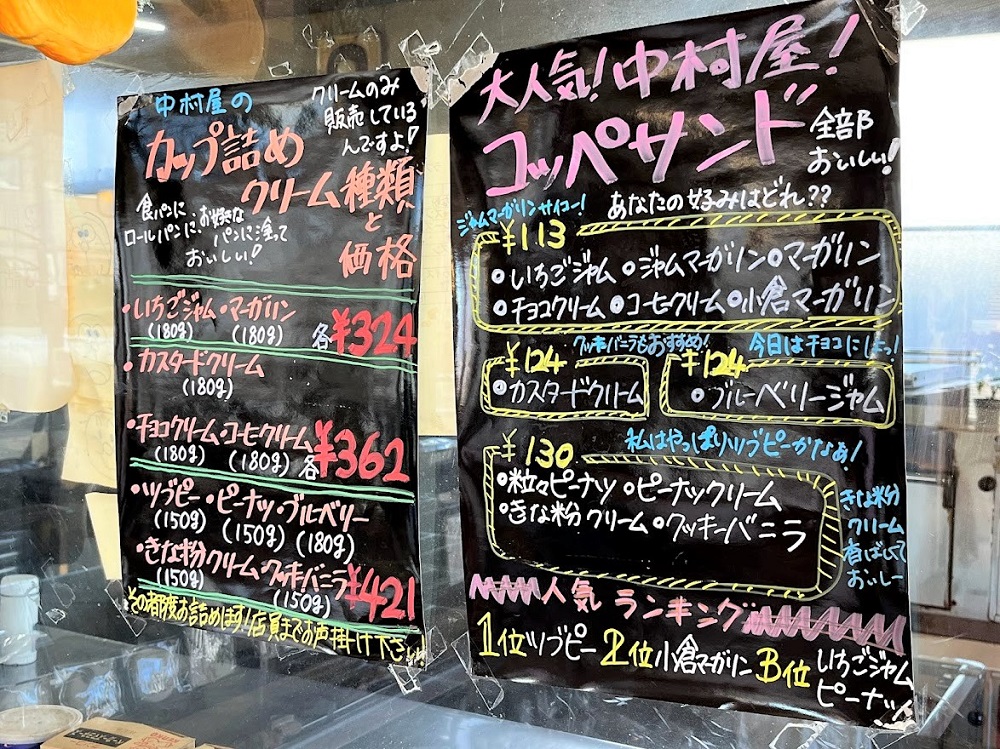 中村屋の
カップ詰め
クリーム種類
と
価格
クリームのみ
販売している
んですよ!
食パンに
ロールパンに、お好きな
パンに塗って
おいしい!
・いちごジャム・マーガリン
(180g) (180g) 各¥324
・カスタードクリーム
(180g)
・チョコクリーム・コーヒクリーム
(180g) (180g) 各¥362
・ツブピー・ピーナッツ・ブルベリー
(150g) (150g) (180g)
・きな粉クリーム・クッキーバニラ ¥421
(150g) (150g)
その都度お詰めます!店員までお声掛け下さい!
大人気!中村屋!
コッペサンド
全部
おいしい!
あなたの好みはどれ??
ジャムマーガリンサイコー!
¥113
いちごジャム ジャムマーガリン マーガリン
チョコクリーム コーヒクリーム 小倉マーガリン
クッキーバニラもおすすめ!
¥124
カスタードクリーム
今日はチョコにしよっ!
¥124
ブルーベリージャム
私はやっぱりツブピーかなぁ!
¥130
粒々ピーナツ ピーナックリーム
きな粉クリーム クッキーバニラ
きな粉
クリーム
香ばしくて
おいしー
人気ランキング
1位ツブピー 2位小倉マーガリン 3位 いちごジャム
ピーナッツ